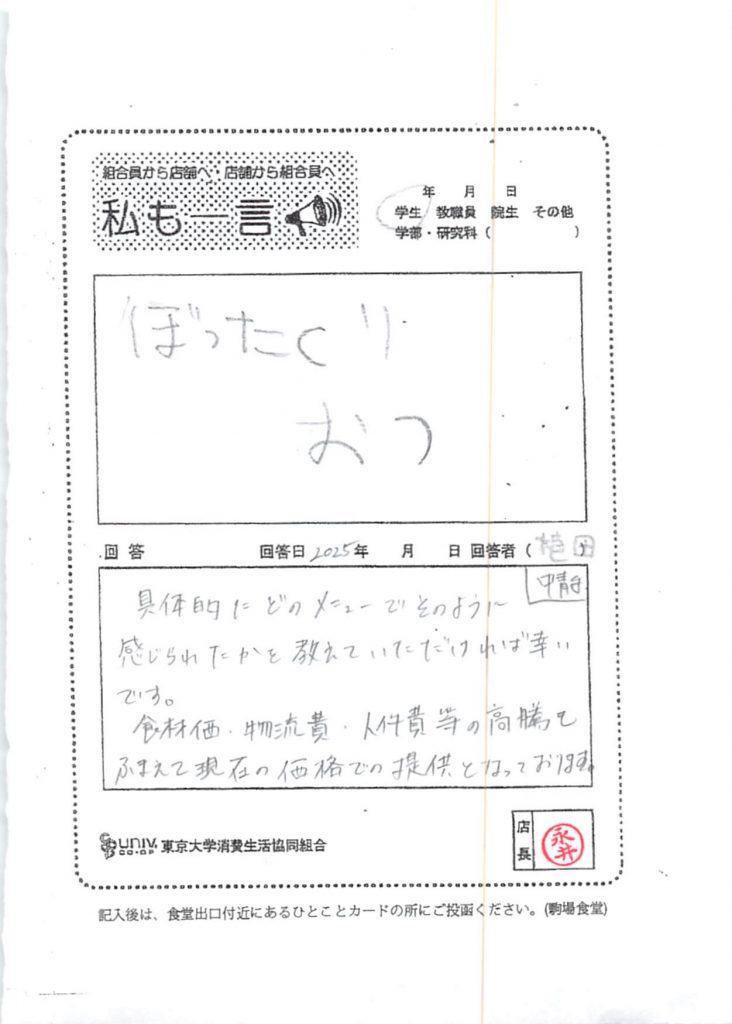 組合員から店舗へ・店舗から組合員へ
私も一言
年 月 日
学生 教職員 院生 その他
学部・研究科 ( )
ぼったくり
おつ
回答 回答日 2025年 月 日 回答者 ( 植田 )
具体的にどのメニューでそのように
感じられたかを教えていただければ幸い
です。
食材価・物流費・人件費等の高騰も
ふまえて現在の価格での提供となっております。
UNIV. CO-OP 東京大学消費生活協同組合
店長 永井
記入後は、食堂出口付近にあるひとことカードの所にご投函ください。(駒場食堂)